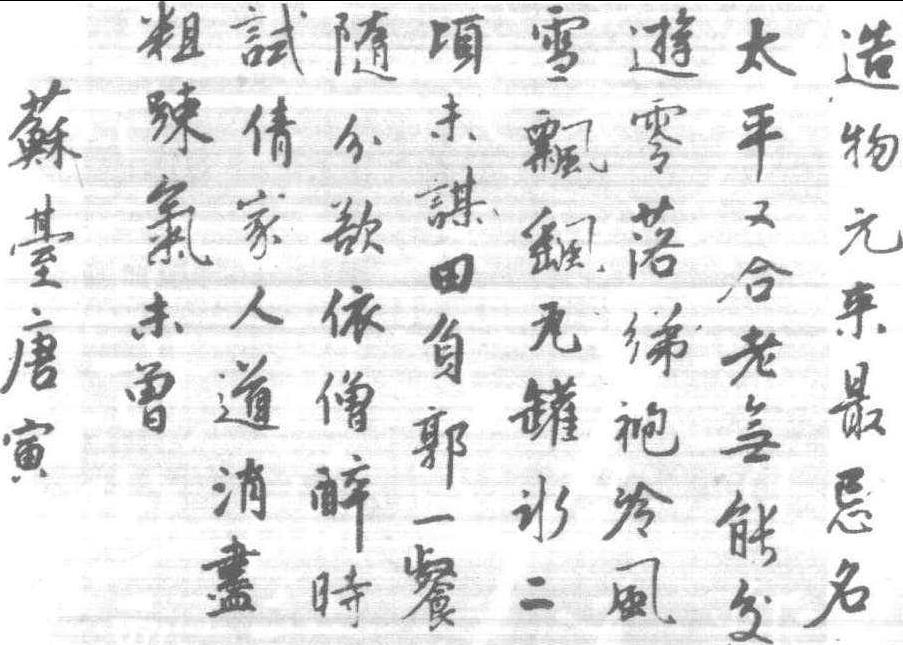 造物元来最忌名
太平又合老無能交
遊零落綈袍冷風
雪飄颻瓦罐冰二
頃未謀田負郭一餐
隨分欲依僧醉時
試倩家人道消盡
粗踈氣未曾
蘇臺唐寅